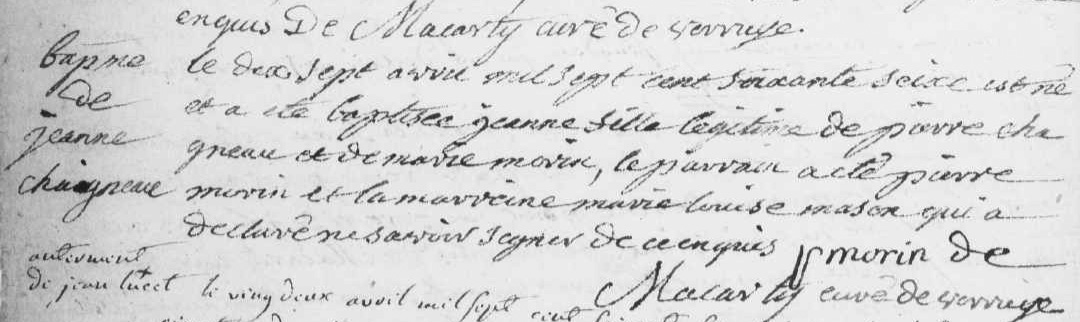 enquis De Macarty curé de verruye.
bapme le dix sept avril mil sept cent soixante seize est né
de et a eté baptisée jeanne fille legitime de pierre cha
jeanne gneau et de marie morin, le parrain a eté pierre
chaigneau morin et la marreine marie louise mason qui a
declaré ne savoir signer de ce enquis p morin De
Macarty curé de verruye
enterrment
de jean lucet le vingt deux avril mil sept cent